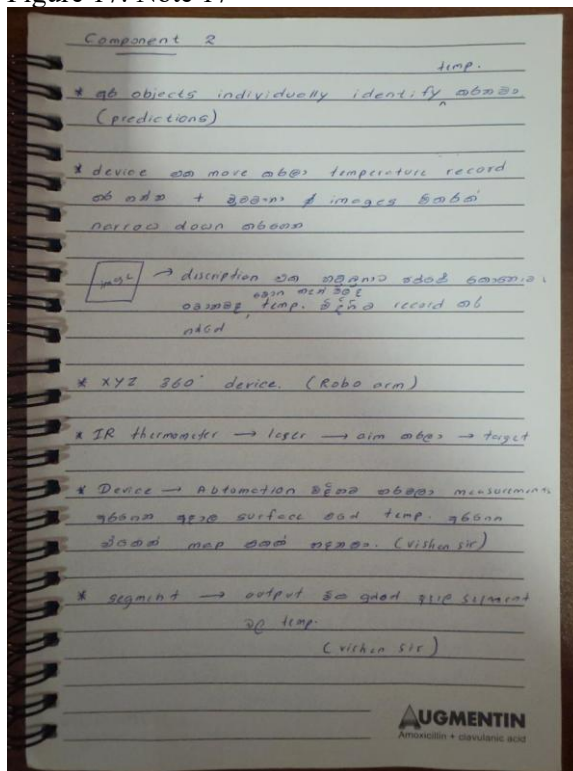 Figure 17: Note 17
Component 2
temp.
* objects individually identify කරනවා
(predictions)
* device එක move කරලා temperature record
කර ගන්න + images ටිකත්
narrow down කරගෙන
image → discription එක
temp. විදිහට record කර
* XYZ 360° device. (Robo arm)
* IR thermometer → laser → aim කරලා → target
* Device → Automation විදිහට measurements
අරගෙන අදාල surface temp. අරගෙන
map එකක් හදනවා. (vishan sir)
* segment → output එක අදාල segment
වල temp.
(vishan sir)
AUGMENTIN
Amoxicillin + clavulanic acid